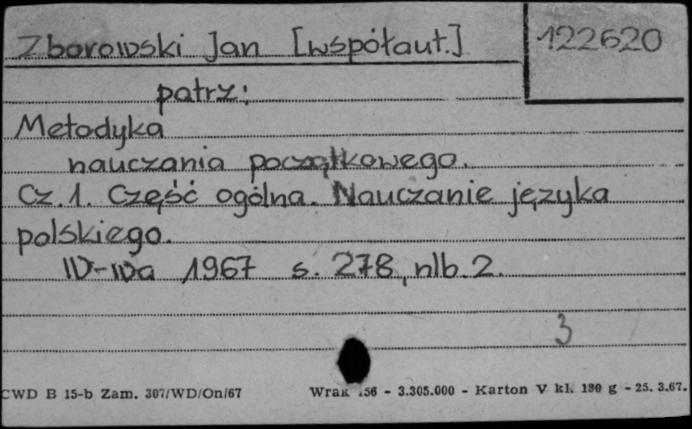 Zborowski Jan [współaut.]
122620
patrz:
Metodyka
nauczania początkowego.
Cz. 1. Część ogólna. Nauczanie języka
polskiego.
W-wa 1967 s. 278, nlb. 2.
3
CWD B 15-b Zam. 307/WD/On/67 56 - 3.305.000 - Karton V kl. 180 g - 25. 3.67.